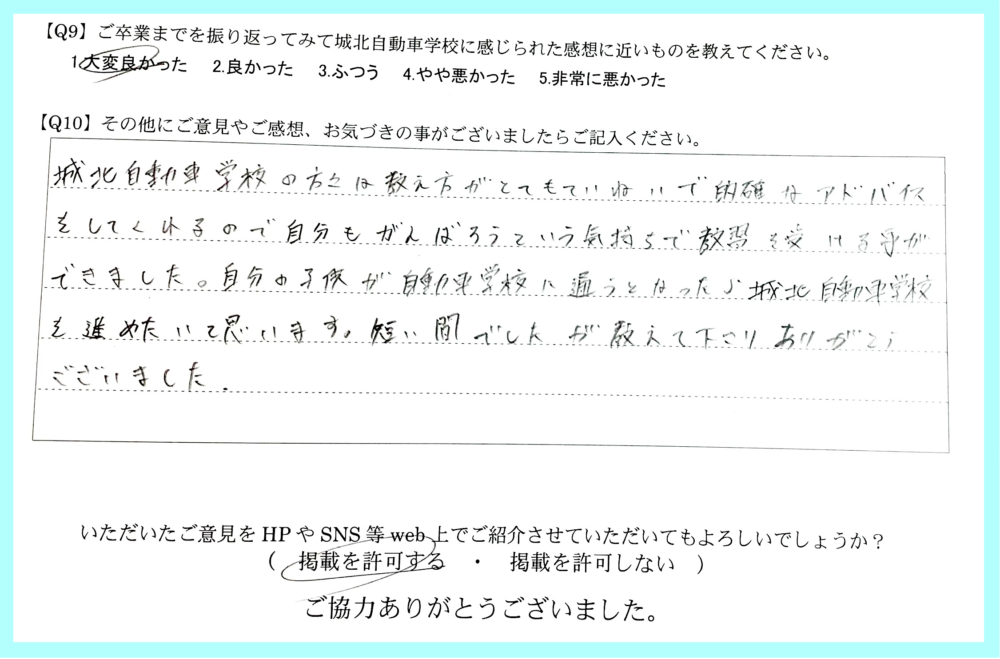 【Q9】ご卒業までを振り返ってみて城北自動車学校に感じられた感想に近いものを教えてください。
1.大変良かった 2.良かった 3.ふつう 4.やや悪かった 5.非常に悪かった
【Q10】その他にご意見やご感想、お気づきの事がございましたらご記入ください。
城北自動車学校の方々は教え方がとてもていねいで的確なアドバイス
をしてくれるので自分もがんばろうという気持ちで教習を受ける事が
できました。自分の子供が自動車学校に通うとなったら城北自動車学校
を進めたいて思います。短い間でしたが教えて下さりありがとう
ございました.
いただいたご意見をHPやSNS等web上でご紹介させていただいてもよろしいでしょうか？
( 掲載を許可する ・ 掲載を許可しない )
ご協力ありがとうございました。